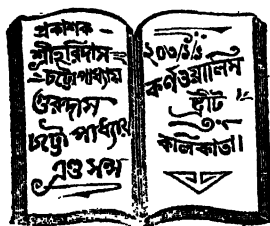 প্রকাশক—
শ্রীহরিদাস
চট্টোপাধ্যায়
গুরুদাস
চট্টোপাধ্যায়
এণ্ড সন্স
২০৩/১/১
কর্ণওয়ালিস
ষ্ট্রীট
কলিকাতা।